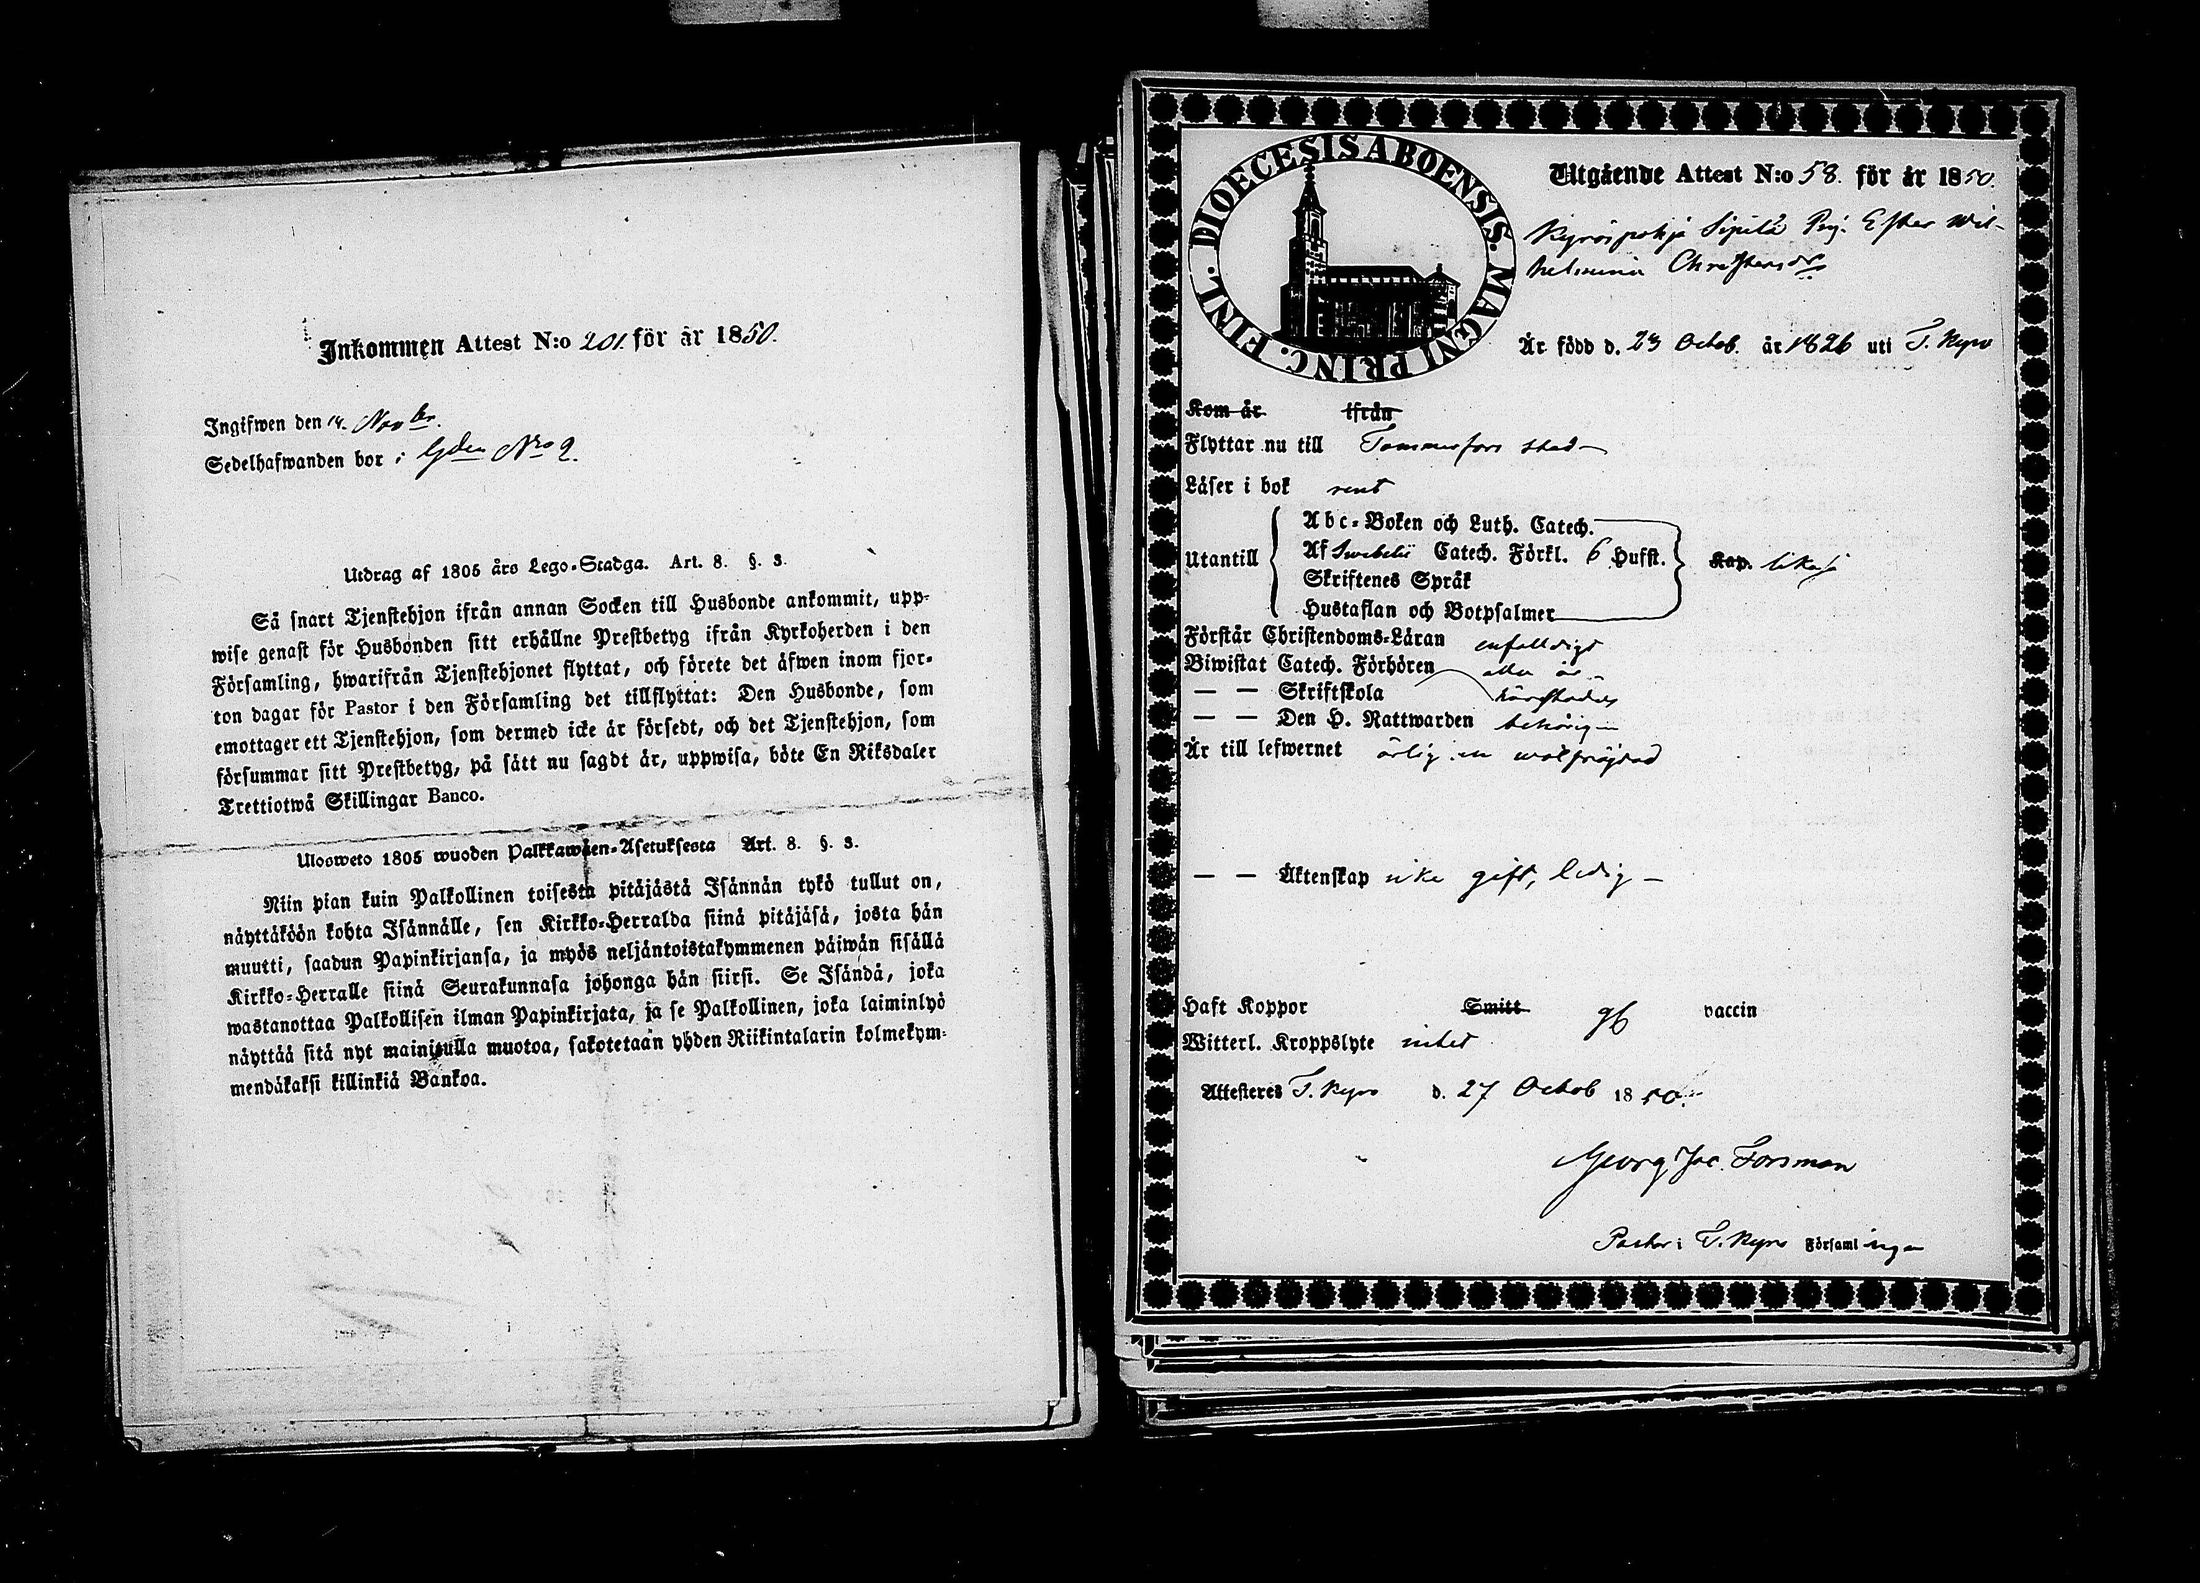 Inkommen Attest N:o 201. för år 1850.
Ingifwen den 14. Novbr.
Sedelhafwanden bor i Gden Nro 2.
Utdrag af 1805 års Lego-Stadga. Art. 8. §. 3.
Så snart Tjenstehjon ifrån annan Socken till Husbonde ankommit, upp-
wise genast för Husbonden sitt erhållne Prestbetyg ifrån Kyrkoherden i den
Församling, hwarifrån Tjenstehjonet flyttat, och förete det äfwen inom fjor-
ton dagar för Pastor i den Församling det tillflyttat: Den Husbonde, som
emottager ett Tjenstehjon, som dermed icke är försedt, och det Tjenstehjon, som
försummar sitt Prestbetyg, på sätt nu sagdt är, uppwisa, böte En Riksdaler
Trettiotwå Skillingar Banco.
Ulosweto 1805 wuoden Palkkawäen-Asetuksesta Art. 8. §. 3.
Niin pian kuin Palkollinen toisesta pitäjästä Isännän tykö tullut on,
näyttäköön kohta Isännälle, sen Kirkko-Herralda siinä pitäjäsä, josta hän
muutti, saadun Papinkirjansa, ja myös neljäntoistakymmenen päiwän sisällä
Kirkko-Herralle siinä Seurakunnasa johonga hän siirsi. Se Isändä, joka
wastanottaa Palkollisen ilman Papinkirjata, ja se Palkollinen, joka laiminlyö
näyttää sitä nyt mainitulla muotoa, sakotetaan yhden Riikintalarin kolmekym-
mendäkaksi killinkiä Bankoa.
DIOECESIS ABOENSIS. MAGNI PRINC. FINL.
Utgående Attest N:o 58. för år 1850.
Kyröspohja Sipilä Pig. Ester Wil-
helmina Christersdr
Är född d. 23 Octob. år 1826 uti T. Kyro
Kom år ifrån
Flyttar nu till Tammerfors stad
Läser i bok rent
Utantill
Abc-Boken och Luth. Catech.
Af Swebelii Catech. Förkl. 6 Hufst. Kap.
Skriftenes Språk
Hustaflan och Botpsalmer
Förstår Christendoms-Läran enfaldigt
Biwistat Catech. Förhören alla år
— — Skriftskola
— — Den H. Nattwarden behörig
Är till lefwernet ärlig en wälfräjdad
— — Äktenskap icke gift, ledig
Haft Koppor Smitt gb vaccin
Witterl. Kroppslyte intet
Attesteres T. Kyro d. 27 Octob 1850.
Georg Jac. Forsman
Pastor i T. Kyro Församlingen